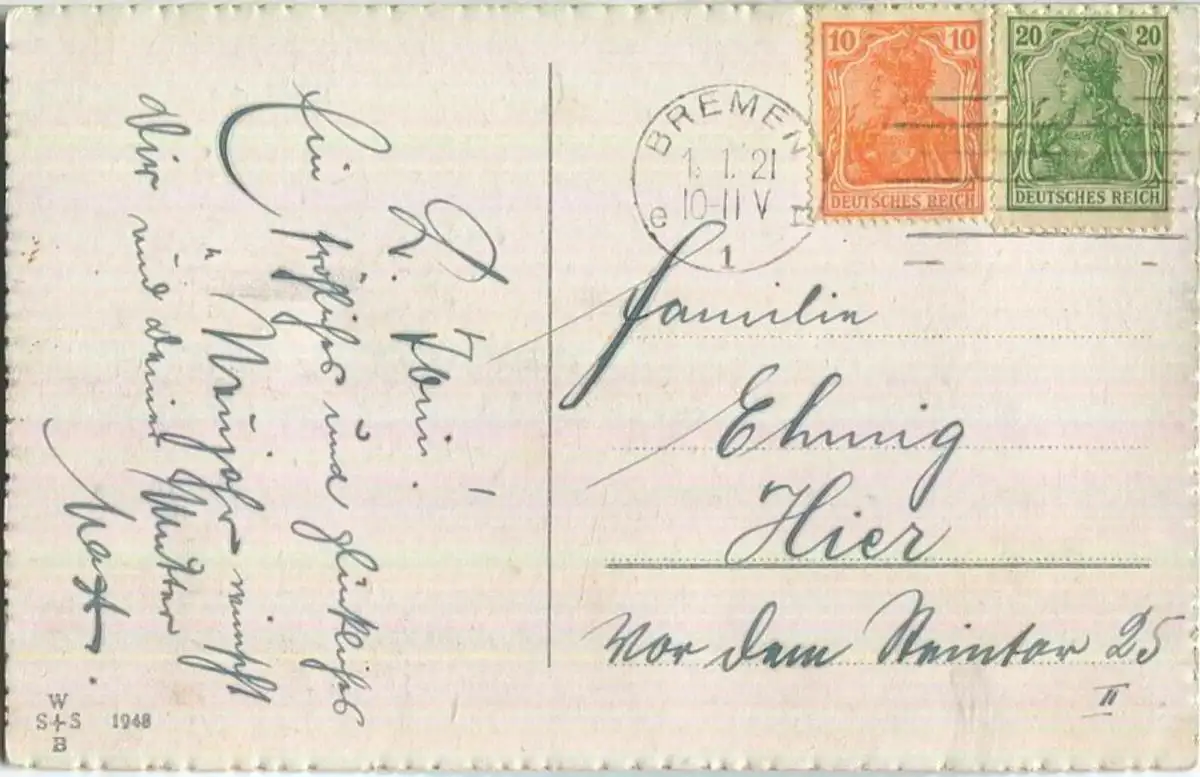 L.
Ein fröhliches und glückliches
Neujahr wünscht
Dir und deine Mutter
BREMEN
1. 1. 21
10-11 V
1
10 10
DEUTSCHES REICH
20 20
DEUTSCHES REICH
Familie
Ehmig
Hier
Vor dem Steintor 25
II
W
S S
B
1948